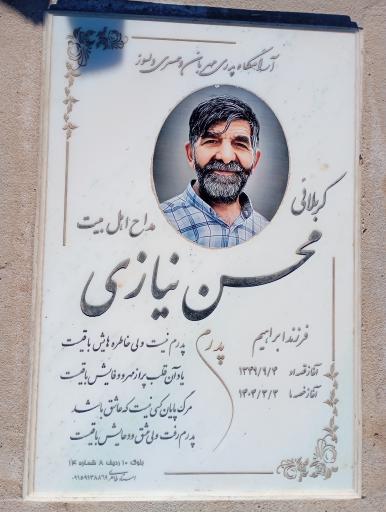 آرامگاه پدری مهربان و همسری دلسوز
کربلائی
مداح اهل بیت
محسن نیازی
فرزند ابراهیم
آغاز قصه ۱۳۴۹/۹/۴
آغاز غصه ۱۴۰۳/۳/۳
پدرم
پدرم نیست ولی خاطره هایش باقیست
یاد آن قلب پر از مهر و وفایش باقیست
مرگ پایان کسی نیست که عاشق باشد
پدرم رفت ولی عشق و دعایش باقیست
بلوک ۱۰ ردیف ۸ شماره ۱۴
۰۹۱۵۹۱۳۸۸۶۹